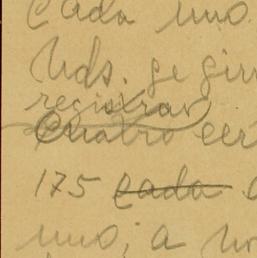 Cada uno
Uds. se gir
registrar
Cuatro cer
175 cada
uno; a no